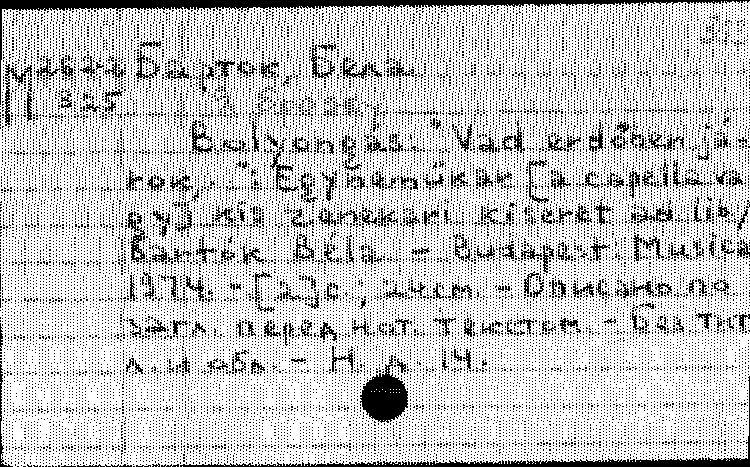 М 2622 Барток, Бела
325
Bolyongás. "Vad erdőben já-
rok, ...": Egyneműkar [a capella va
gy] kis zenekari kíséret ad lib/
Bartók Béla - Budapest: Musica
1974. - [2] с; 24 cm. - Описано по
загл. перед нот. текстом. - Без тит
л. и обл. - Н. д 14.